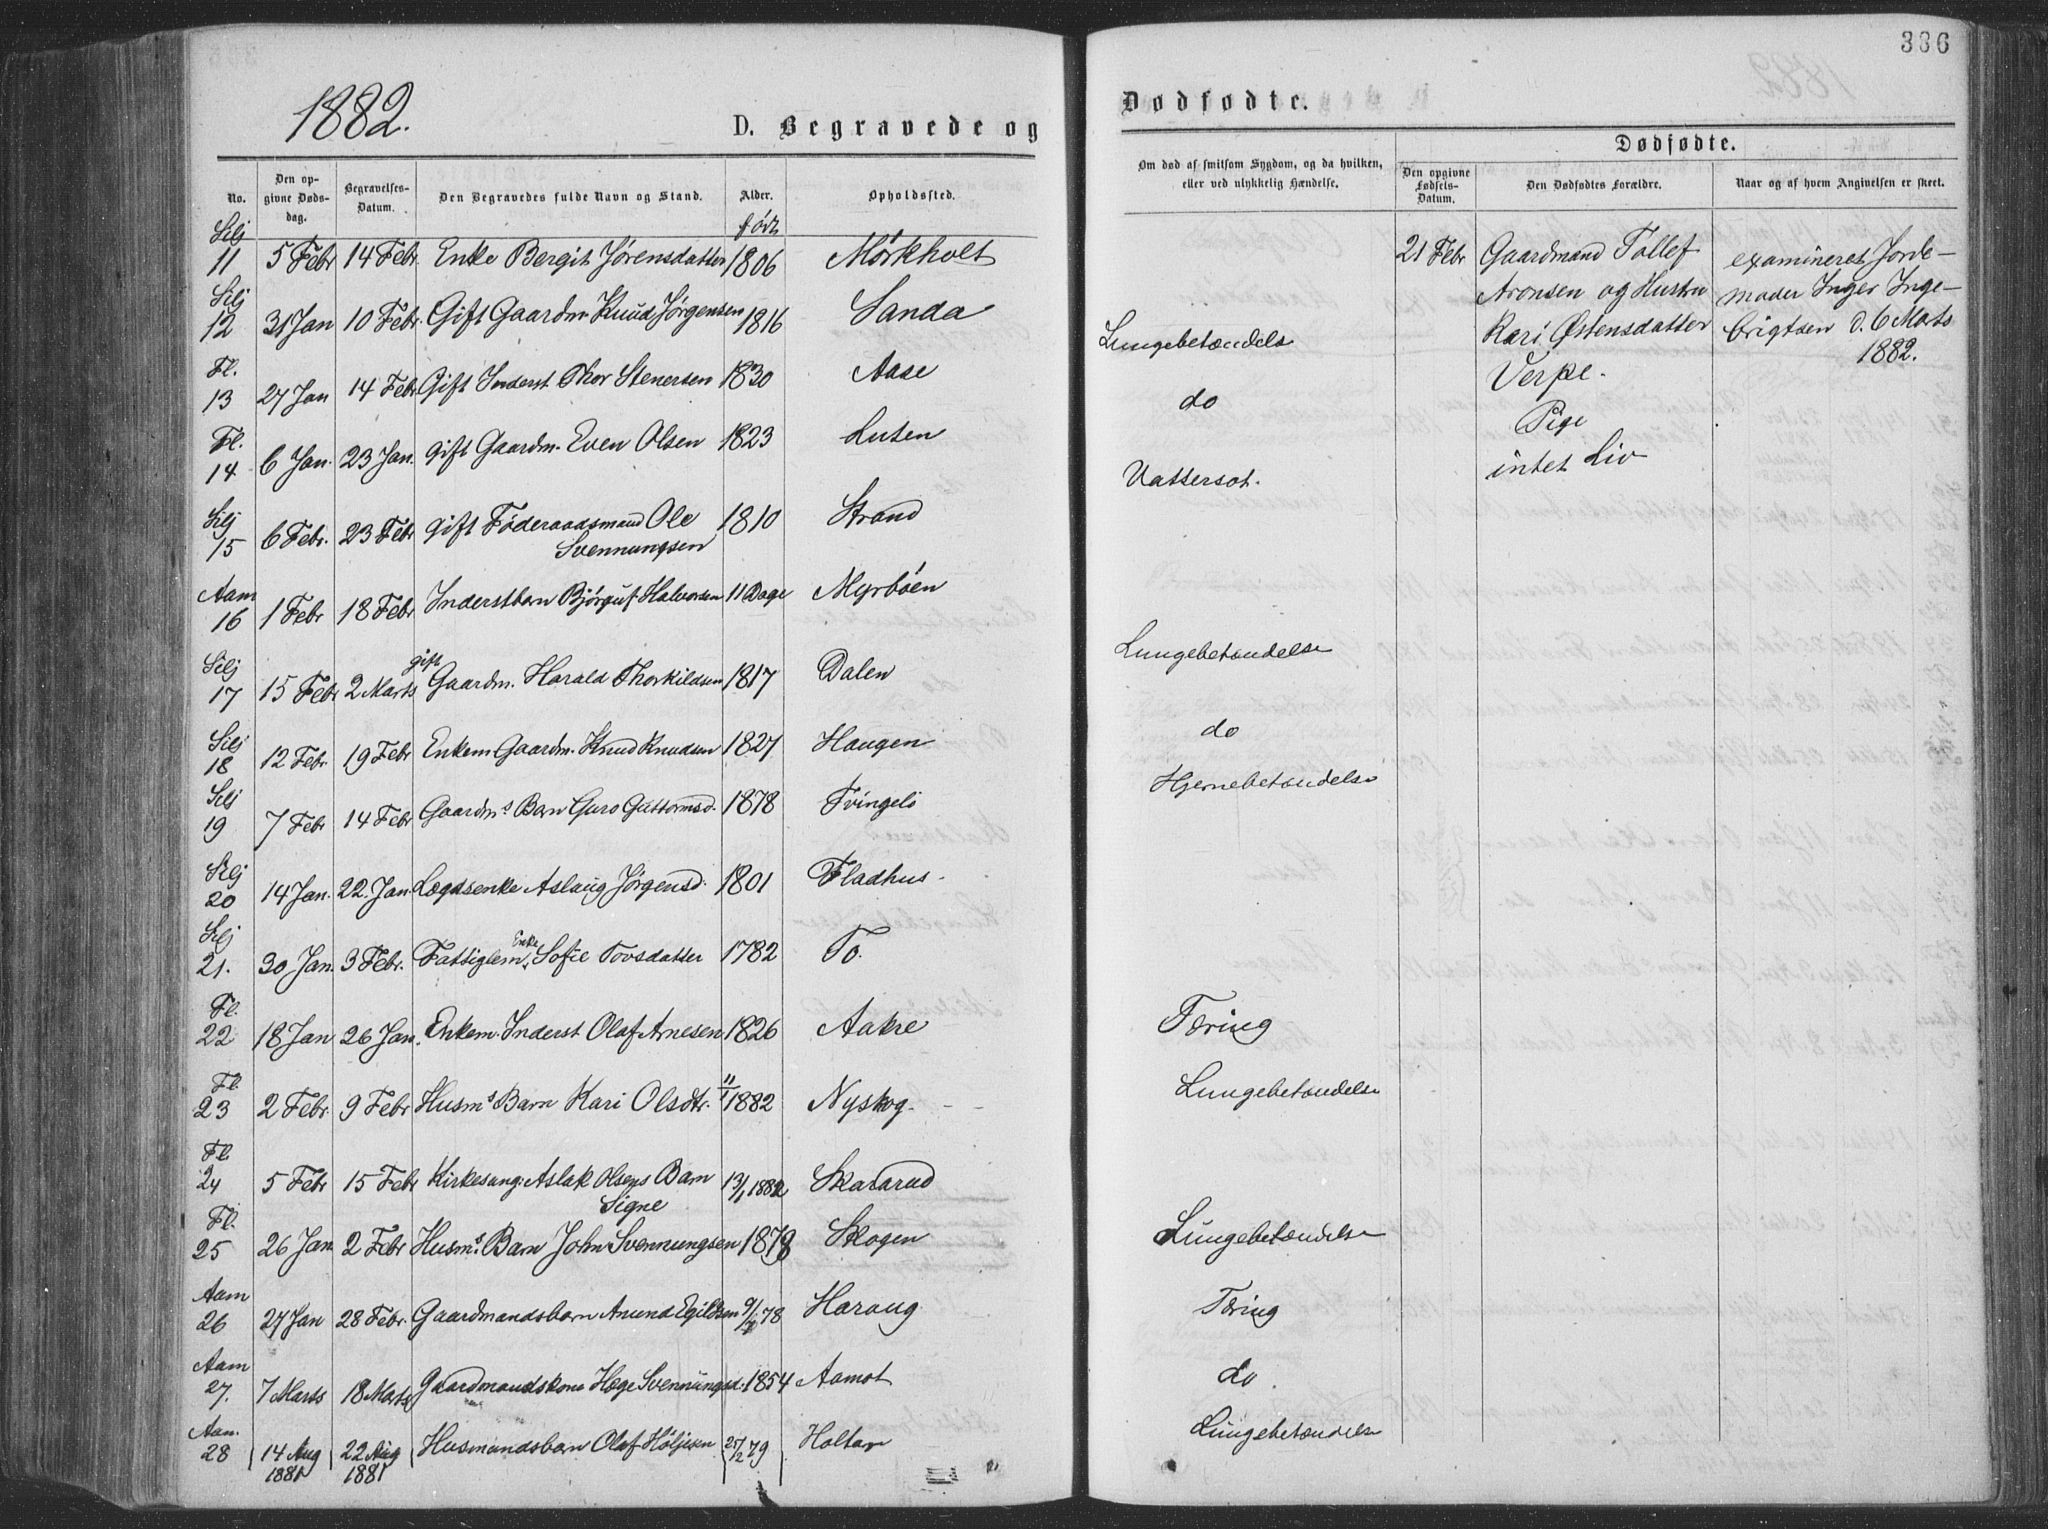 336
1882.
D. Begravede og
Dødfødte.
No.
Den op-
givne Døds-
dag.
Begravelses-
Datum.
Den Begravedes fulde Navn og Stand.
Alder.
født
Opholdssted.
Om død af smitsom Sygdom, og da hvilken,
eller ved ulykkelig Hændelse.
Dødfødte.
Den opgivne
Fødsels-
Datum.
Den Dødfødtes Forældre.
Naar og af hvem Angivelsen er skeet.
Silj
11 5 Febr 14 Febr. Enke Bergit Jørensdatter 1806 Mørkhvolt
21 Febr Gaardmand Tollef examineret Jorde-
Aronsen og Hustru moder Inger Inge-
Kari Østensdatter brigtsen d. 6 Marts
Verpe. 1882.
Pige
intet Liv
Silj
12 31 Jan 10 Febr. Gift Gaardm Knud Jørgensen 1816 Sanda
Lungebetændels
Fl.
13 27 Jan 14 Febr Gift Inderst Thor Stenersen 1830 Aase
do
Fl.
14 6 Jan. 23 Jan. gift Gaardm. Even Olsen 1823 Lusen
Vattersot.
Silj
15 6 Febr. 23 Febr gift Føderaadsmand Ole 1810 Strand
Svennungsen
Aam
16 1 Febr 18 Febr Inderstbarn Bjørguf Halvorsen 11 Dage Myrbøen
Silj
gift
17 15 Febr 2 Marts Gaardm. Harald Thorkildsen 1817 Dalen
Lungebetændelse
Silj
18 12 Febr. 19 Febr Enkem Gaardm. Knud Knudsen 1827 Haugen
do
Silj
19 7 Febr 14 Febr Gaardms Barn Guro Guttormsd. 1878 Tvingelö
Hjernebetændelse
Silj
20 14 Jan. 22. Jan. Lægdsenke Aslaug Jørgensd. 1801 Fladhus.
Silj
Enke
21. 30 Jan. 3 Febr. Fattiglem, Sofie Tovsdatter 1782 To.
Fl.
22 18 Jan 26 Jan. Enkem. Inderst Olaf Arnesen 1826 Aakre
Tæring
Fl.
23 2 Febr. 9 Febr Husms Barn Kari Olsdtr. 11/1 1882 Nyskog.
Lungebetændelse
Fl.
24 5 Febr 15 Febr Kirkesang. Aslak Olsens Barn 13/1 1882 Skararud
Signe
Fl.
25 26 Jan 2 Febr Husms. Barn John Svennungsen 1878 Skogen
Lungebetændelse
Aam
26 27 Jan 28 Febr. Gaardmandsbarn Anund Egildsen 9/7 78 Haraug
Tæring
Aam
27. 7 Marts 18 Marts Gaardmandskone Hæge Svennungsd. 1854 Aamot
do.
Aam.
28 14 Aug 22 Aug Husmandsbarn Olaf Höljesen 27/2 79 Holtan
1881 1881
Lungebetændelse